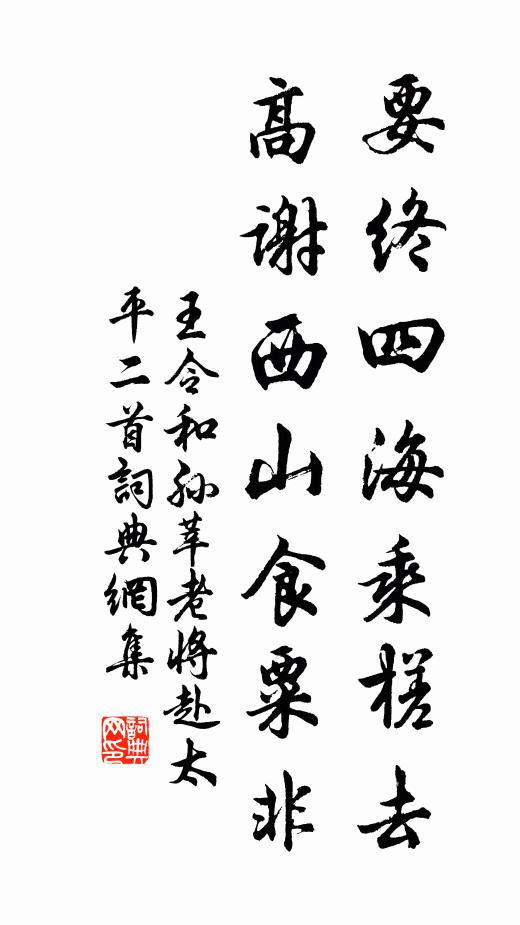 要終四海乘槎去
高謝西山食粟非
王令和孫莘老將赴太
平二首詞典網集
詞典
网印